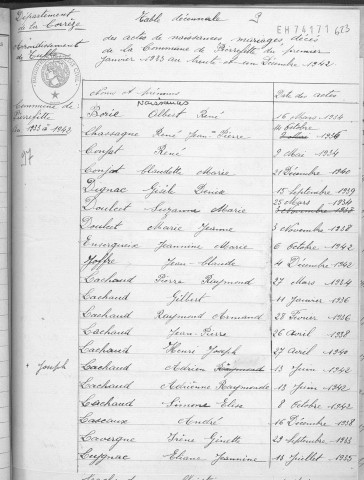 Département
de la Corrèze
Arrondissement
de Tulle
Commune de
Pierrefitte
1933 à 1942
Table décennale
EH74171 623
des actes de naissances mariages décès
de la Commune de Pierrefitte du premier
Janvier 1933 au trente et un Décembre 1942
Noms et prénoms Date des actes
Naissances
Albert René 16 Mars 1934
Chassagne René Jean-Pierre Octobre 1936
René 9 Mai 1934
Claudette Marie Décembre 1940
Dignac Denise 15 Septembre 1939
Suzanne Marie 25 Mars 1934
Marie Jeanne 3 Novembre 1938
Jeannine Marie 6 Octobre 1942
Joffre Jean-Claude 4 Décembre 1942
Lachaud Pierre Raymond 27 Mars 1934
Lachaud Gilbert 11 Janvier 1936
Lachaud Raymond Armand 28 Février 1936
Lachaud Jean-Pierre 26 Avril 1938
Lachaud Henri Joseph 27 Avril 1940
+ Joseph Lachaud Adrien 13 Juin 1942
Lachaud Adrienne Raymonde 13 Juin 1942
Lachaud Simone Elise 8 Octobre 1942
Lascaux André 16 Décembre 1938
Lavergne Irène Ginette 29 Septembre 1933
Eliane Jeannine 18 Juillet 1935